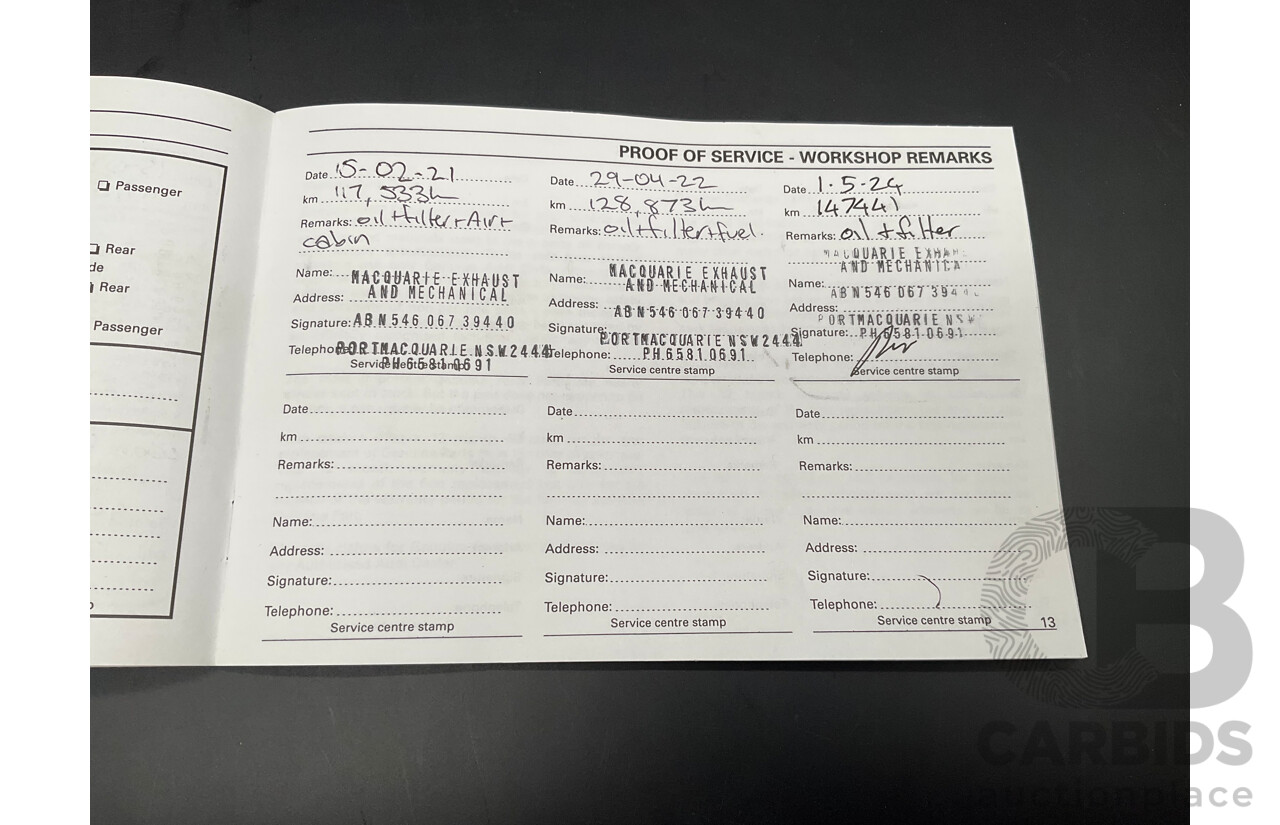 Passenger
Rear
de
Rear
Passenger
PROOF OF SERVICE - WORKSHOP REMARKS
Date 15-02-21
km 117,533km
Remarks: oil + filter + Air +
cabin
Name: MACQUARIE EXHAUST
Address: AND MECHANICAL
Signature: ABN 546 067 39440
Telephone: PORTMACQUARIE NSW 2444
PH 6581 0691
Service centre stamp
Date 29-04-22
km 128,873km
Remarks: oil + filter + fuel.
MACQUARIE EXHAUST
Name: AND MECHANICAL
Address: ABN 546 067 39440
Signature:
PORTMACQUARIE NSW 2444
Telephone: PH 6581 0691
Service centre stamp
Date 1.5.24
km 147441
Remarks: oil + filter
MACQUARIE EXHA
AND MECHANICA
Name:
ABN 546 067 394
Address:
PORTMACQUARIE NSW
Signature: PH 6581 0691
Telephone:
Service centre stamp
Date
km
Remarks:
Name:
Address:
Signature:
Telephone:
Service centre stamp
Date
km
Remarks:
Name:
Address:
Signature:
Telephone:
Service centre stamp
Date
km
Remarks:
Name:
Address:
Signature:
Telephone:
Service centre stamp
13
CB
CARBIDS
auctionplace